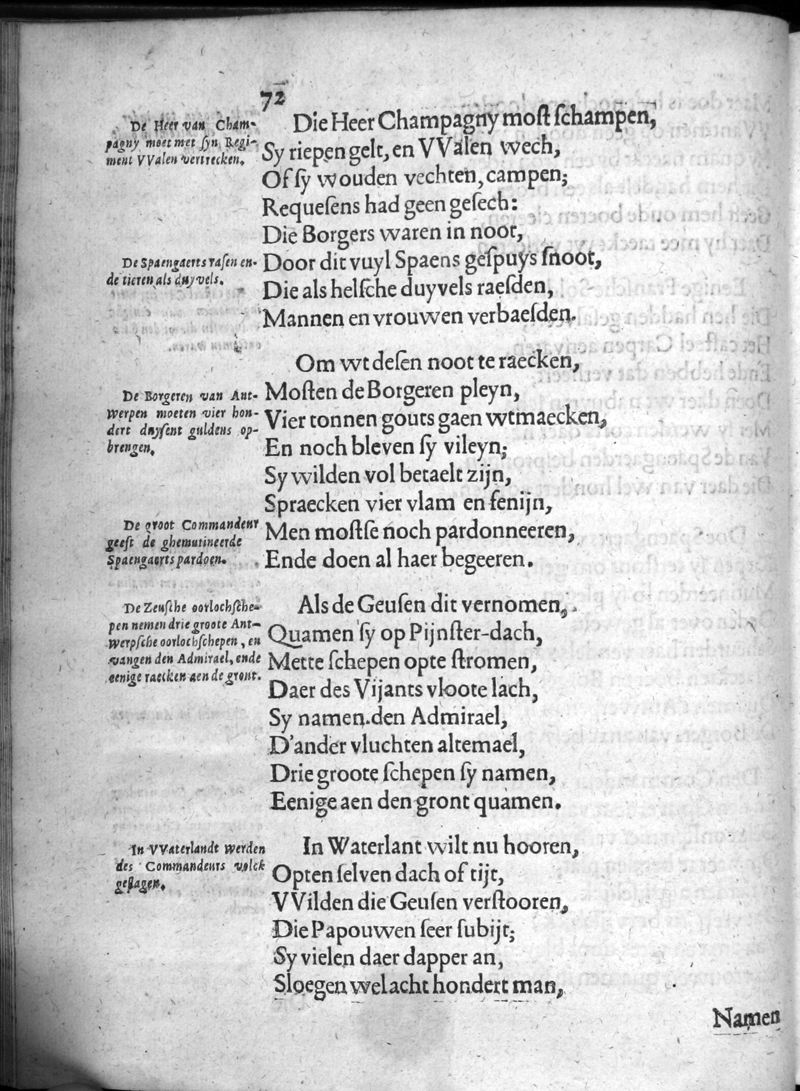 72
De Heer van Cham-
pagny moet met syn Regi-
ment VValen vertrecken.
Die Heer Champagny moſt ſchampen,
Sy riepen gelt, en VValen wech,
Of ſy wouden vechten, campen;
Requeſens had geen geſech:
Die Borgers waren in noot,
De Spaengaerts raſen en-
de tieren als duyvels.
Door dit vuyl Spaens geſpuys ſnoot,
Die als helſche duyvels raeſden,
Mannen en vrouwen verbaeſden.
Om wt deſen noot te raecken,
De Borgeren van Ant-
werpen moeten vier hon-
dert duyſent guldens op-
brengen.
Moſten de Borgeren pleyn,
Vier tonnen gouts gaen wtmaecken,
En noch bleven ſy vileyn;
Sy wilden vol betaelt zijn,
Spraecken vier vlam en fenijn,
De groot Commandeur
geeft de ghemutineerde
Spaengaerts pardoen.
Men moſtſe noch pardonneeren,
Ende doen al haer begeeren.
De Zeuſche oorlochſche-
pen nemen drie groote Ant-
werpſche oorlochſchepen, en
vangen den Admirael, ende
eenige raecken aen de gront.
Als de Geuſen dit vernomen,
Quamen ſy op Pijnſter-dach,
Mette ſchepen opte ſtromen,
Daer des Vijants vloote lach,
Sy namen den Admirael,
D'ander vluchten altemael,
Drie groote ſchepen ſy namen,
Eenige aen den gront quamen.
In VVaterlandt werden
des Commandeurs volck
geſlagen.
In Waterlant wilt nu hooren,
Opten ſelven dach of tijt,
VVilden die Geuſen verſtooren,
Die Papouwen ſeer ſubijt;
Sy vielen daer dapper an,
Sloegen wel acht hondert man,
Namen